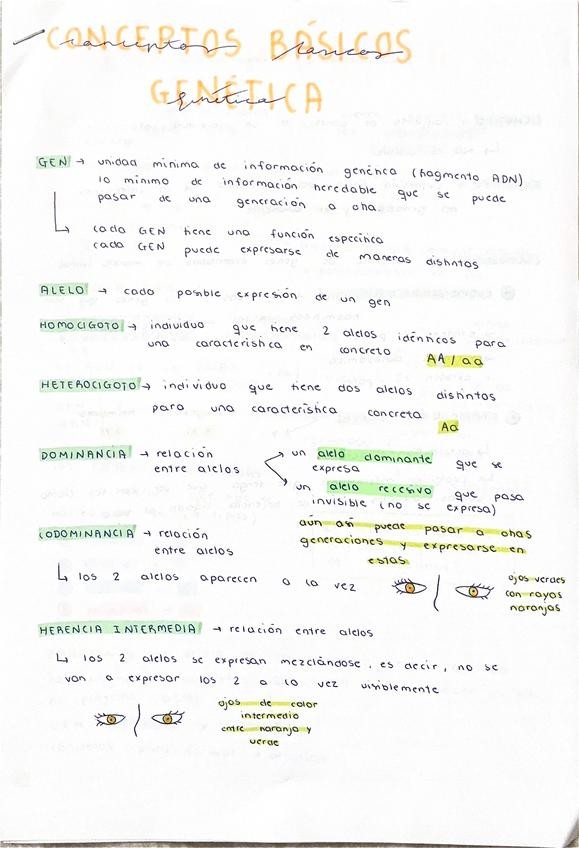 CONCEPTOS BÁSICOS
conceptos básicos
GENÉTICA
genética
GEN → unidad mínima de información genética (fragmento ADN)
lo mínimo de información heredable que se puede
pasar de una generación a otra.
cada GEN tiene una función específica
cada GEN puede expresarse de maneras distintas
ALELO → cada posible expresión de un gen
HOMOCIGOTO → individuo que tiene 2 alelos idénticos para
una característica en concreto AA / aa
HETEROCIGOTO → individuo que tiene dos alelos distintos
para una característica concreta
Aa
DOMINANCIA → relación
entre alelos
un alelo dominante que se
expresa
un alelo recesivo que pasa
invisible (no se expresa)
aún así puede pasar a otras
generaciones y expresarse en
estas
CODOMINANCIA → relación
entre alelos
los 2 alelos aparecen a la vez
ojos verdes
con rayos
naranjas
HERENCIA INTERMEDIA → relación entre alelos
los 2 alelos se expresan mezclándose, es decir, no se
van a expresar los 2 a la vez visiblemente
ojos de color
intermedio
entre naranja y
verde